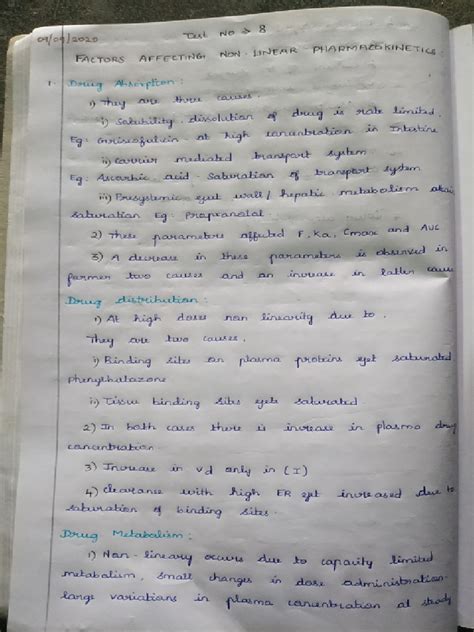 09/09/2020
Test No → 8
FACTORS AFFECTING NON-LINEAR PHARMACOKINETICS
1. Drug Absorption :
1) They are three causes.
i) Solubility, dissolution of drug is rate limited.
Eg: Griseofulvin - at high concentration in Intestine
ii) Carrier mediated transport system
Eg: Ascorbic acid - Saturation of transport system
iii) Presystemic gut wall / hepatic metabolism
saturation Eg: Propranolol
2) These parameters affected F, Ka, Cmax and AUC
3) A decrease in these parameters is observed in
former two causes and an increase in latter cause
Drug distribution :
1) At high doses non linearity due to.
They are two causes.
i) Binding sites on plasma proteins get saturated
phenylbutazone
ii) Tissue binding sites gets saturated
2) In both cases there is increase in plasma drug
concentration.
3) Increase in Vd only in (I)
4) Clearance with high ER get increased due to
saturation of binding sites.
Drug Metabolism :
1) Non-lineary occurs due to capacity limited
metabolism, small changes in dose administration-
large variations in plasma concentration at steady